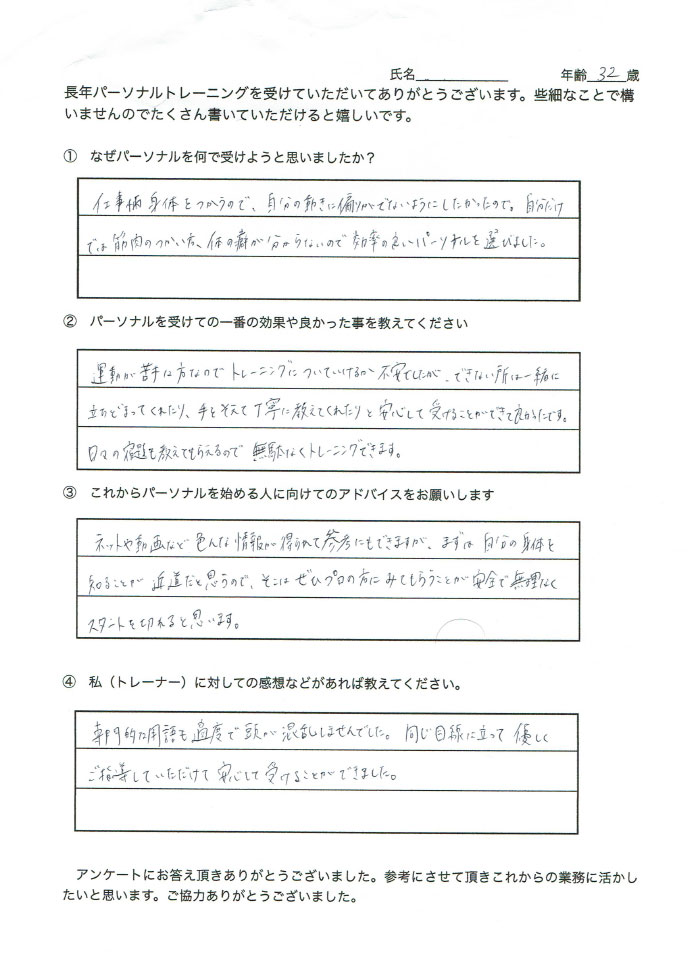 氏名 年齢 32 歳
長年パーソナルトレーニングを受けていただいてありがとうございます。些細なことで構
いませんのでたくさん書いていただけると嬉しいです。
① なぜパーソナルを何で受けようと思いましたか？
仕事柄身体をつかうので、自分の動きに偏りがでないようにしたかったので。自分だけ
では筋肉のつかい方、体の癖が分からないので効率の良いパーソナルを選びました。
② パーソナルを受けての一番の効果や良かった事を教えてください
運動が苦手な方なのでトレーニングについていけるか不安でしたが、できない所は一緒に
立ちどまってくれたり、手をそえて丁寧に教えてくれたりと安心して受けることができて良かったです。
日々の宿題も教えてもらえるので無駄なくトレーニングできます。
③ これからパーソナルを始める人に向けてのアドバイスをお願いします
ネットや動画など色んな情報が得られて参考にもできますが、まずは自分の身体を
知ることが近道だと思うので、そこはぜひプロの方にみてもらうことが安全で無理なく
スタートを切れると思います。
④ 私（トレーナー）に対しての感想などがあれば教えてください。
専門的な用語も適度で頭が混乱しませんでした。同じ目線に立って優しく
ご指導していただけて安心して受けることができました。
アンケートにお答え頂きありがとうございました。参考にさせて頂きこれからの業務に活かし
たいと思います。ご協力ありがとうございました。